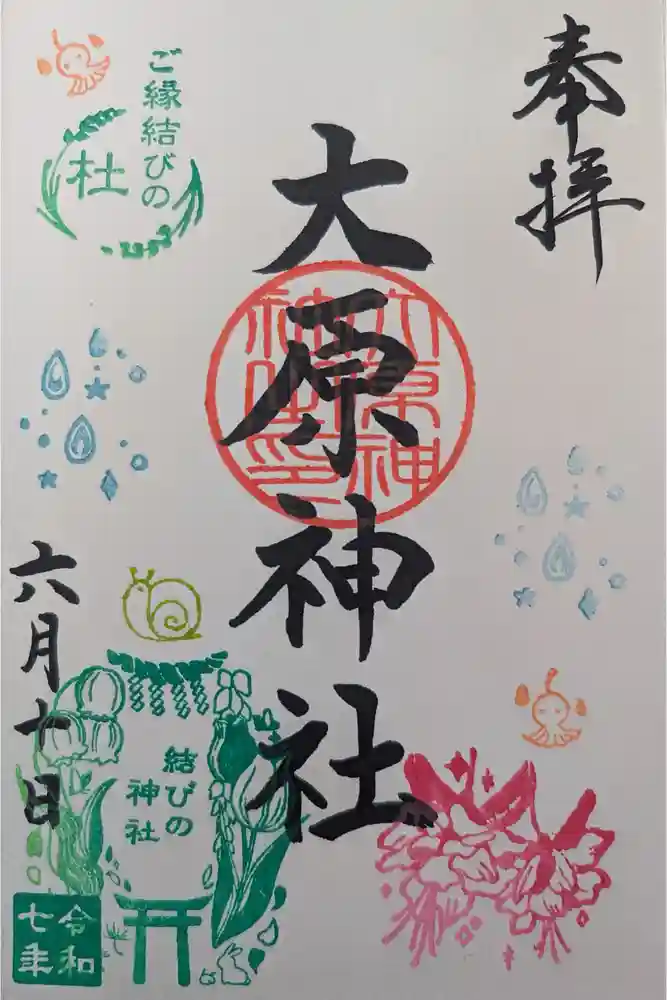 奉拝
大原神社
大原神社之印
ご縁結びの
杜
六月十日
結びの
神社
令和
七年